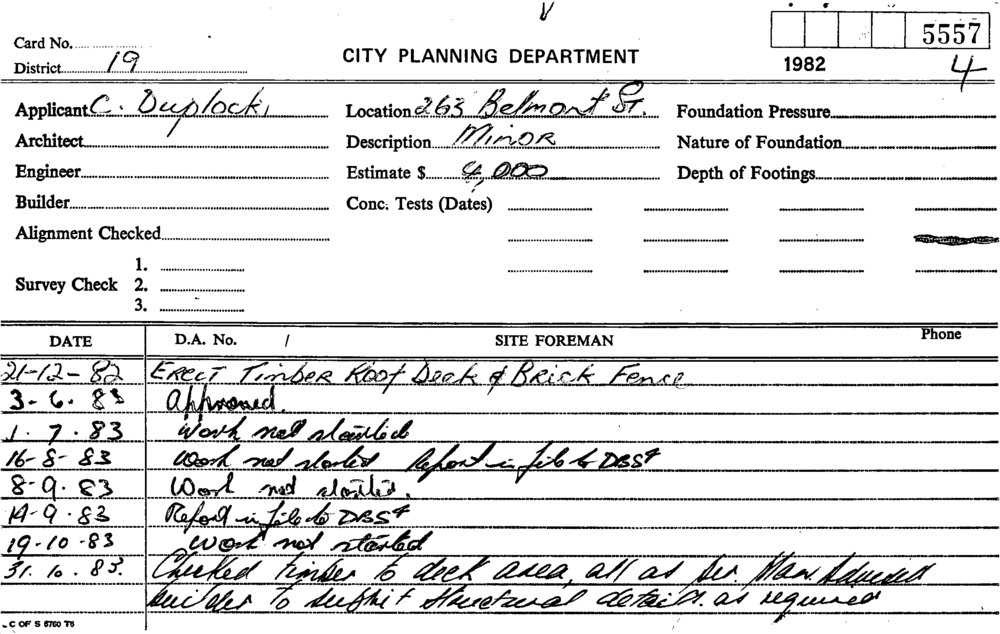 5557
Card No.
CITY PLANNING DEPARTMENT
District 19
1982 4
Applicant C. Duplock, Location 263 Belmont St. Foundation Pressure
Architect Description MINOR Nature of Foundation
Engineer Estimate $ 4,000 Depth of Footings
Builder Conc. Tests (Dates)
Alignment Checked
1.
Survey Check 2.
3.
DATE D.A. No. / SITE FOREMAN Phone
21-12-82 ERECT TIMBER Roof Deck & BRICK Fence
3-6-83 Approved.
1.7.83 Work not started
16-8-83 Work not started Report in file to DBS4
8-9-83 Work not started.
14-9-83 Report in file to DBS4
19-10-83 Work not started
31.10.83. Checked timber to deck area, all as per
builder to submit structural details. as required
C OF S 6760 T6